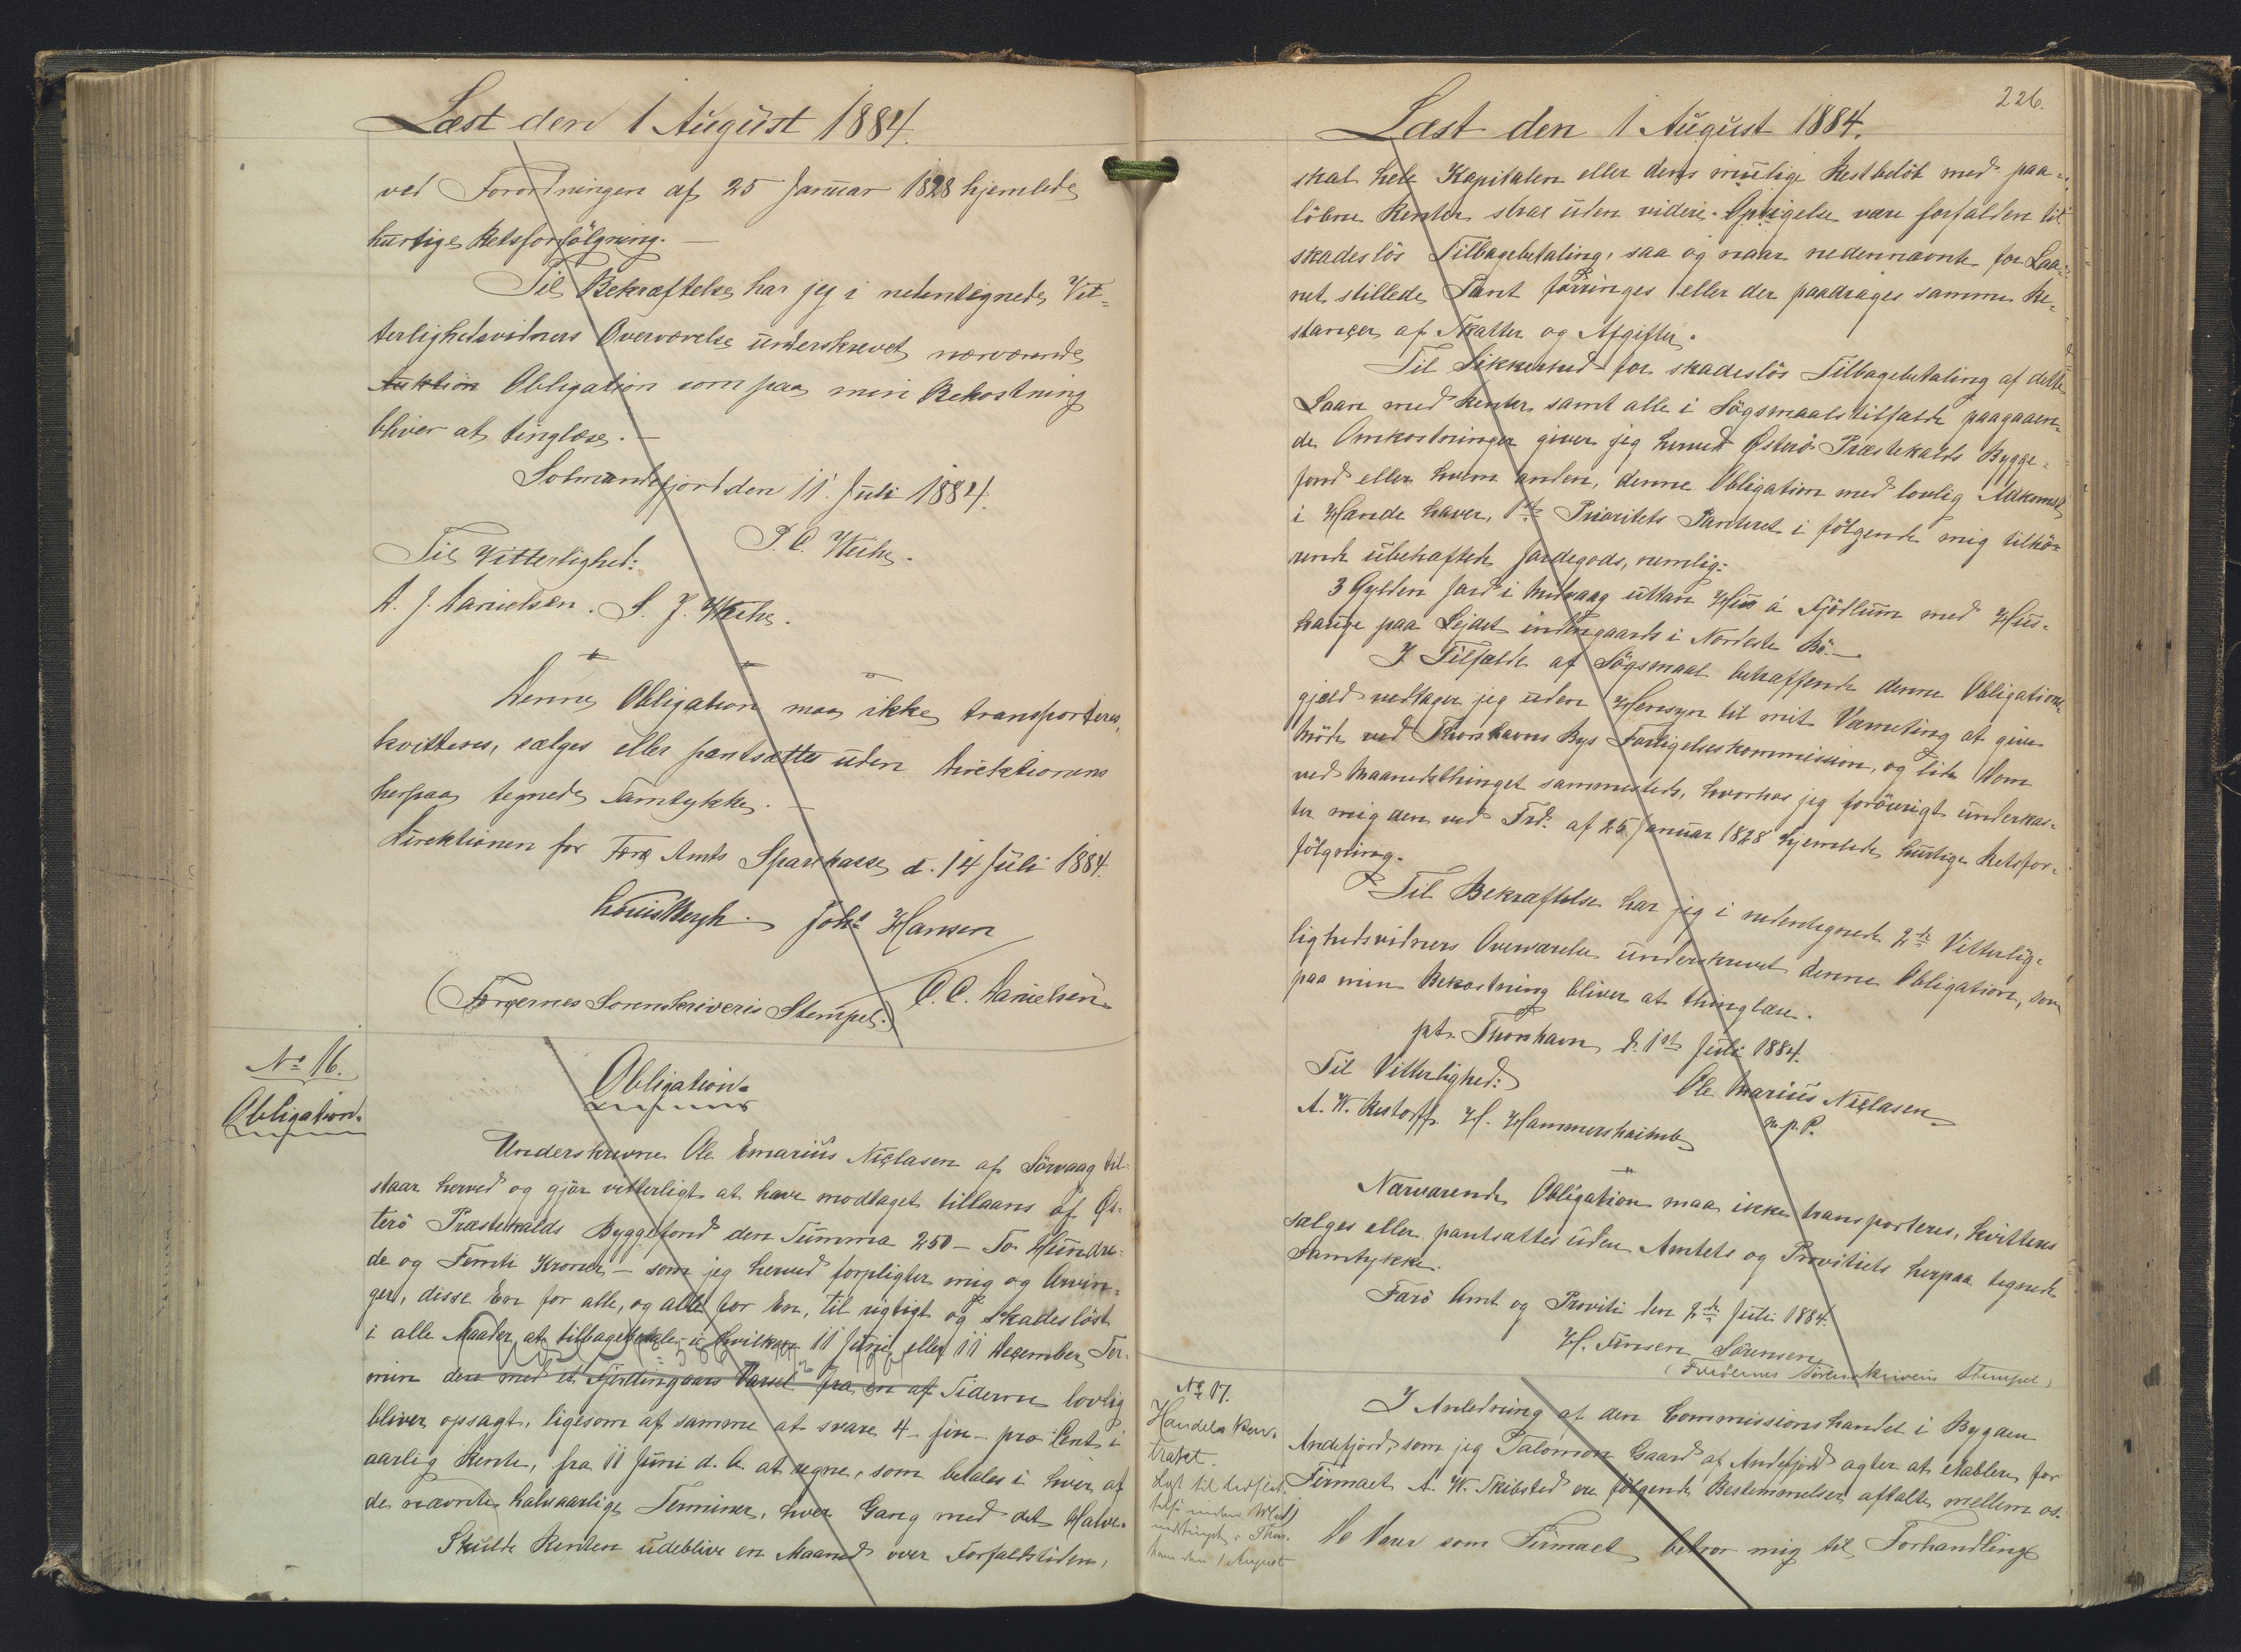 Læst den 1 August 1884.
ved Forordningen af 25 Januar 1828 hjemlede
hurtige Retsforfölgning. —
Til Bekræftelse har jeg i nedentegnede Vit-
terlighedsvidners Overværelse underskrevet nærværende
Auktion Obligation som paa min Bekostning
bliver at tinglæse. —
Solmundefjord den 11. Juli 1884.
P. C. Weihe.
Til Vitterlighed:
D. J. Danielsen. S. J. Weihe.
Denne Obligation maa ikke transporteres,
kvitteres, sælges eller pantsættes uden Direktionens
herpaa tegnede Samtykke. —
Direktionen for Færø Amts Sparekasse d. 14 Juli 1884.
Louis Bergh. Johs Hansen
C. C. Danielsen
(Færøernes Sorenskriveris Stempel.)
No 16.
Obligation.
Obligation.
Underskrevne Ole Emarius Niclasen af Sörvaag til-
staar herved og gjör vitterligt at have modtaget tillaans af Øs-
terö Præstekalds Byggefond den Summa 250 — To Hundre-
de og Femti Kroner — som jeg herved forpligter mig og Arvin-
ger, disse En for alle, og alle for En, til rigtigt og skadeslöst
i alle Maader at tilbagebetale i hvilken 11 Juni eller 11 December Ter-
min den med et Fjerdingaars Varsel fra en af Siderne lovlig
bliver opsagt, ligesom af samme at svare 4 — fire — pro Cent i
aarlig Rente, fra 11 Juni d. A. at regne, som betales i hver af
de nævnte halvaarlige Terminer, hver Gang med det Halve.
Skulde Renten udeblive en Maaned over Forfaldstiden,
226.
Læst den 1 August 1884.
skal hele Kapitalen eller dens mulige Restbelöb med paa-
löbne Renter strax uden videre Opsigelse være forfalden til
skadeslös Tilbagebetaling, saa og naar nedennævnte for Laa-
net stillede Pant forringes eller der paadrages samme Re-
stancer af Skatter og Afgifter.
Til Sikkerhed for skadeslös Tilbagebetaling af dette
Laan med Renter samt alle i Sögsmaalstilfælde paagaaen-
de Omkostninger giver jeg herved Østerö Præstekalds Bygge-
fond eller hvem anden, denne Obligation med lovlig Adkomst
i Hænde haver, 1ste Prioritets Panteret i fölgende mig tilhö-
rende ubehæftede Jordegods, nemlig:
3 Gylden Jord i Midvaag uttan Hus á Fjöllum med Hus-
hauge paa Lejdet indengaards i Nordeste Bö. —
I Tilfælde af Sögsmaal betræffende denne Obligations-
gjæld vedtager jeg uden Hensyn til mit Værneting at give
Möde ved Thorshavns Bys Forligelseskommission, og lide Dom
ved Maanedsthinget sammesteds, hvorhos jeg forövrigt underkas-
ter mig den ved Frd. af 25 Januar 1828 hjemlede hurtige Retsfor-
fölgning.
Til Bekræftelse har jeg i nedentegnede 2de Vitterlig-
lighedsvidners Overværelse underskrevet denne Obligation, som
paa min Bekostning bliver at thinglæse.
pt. Thorshavn, d. 1st Juli 1884.
Til Vitterlighed: Ole Marius Niclasen
A. W. Restorff. H. Hammershaimb m. p. P.
Nærværende Obligation maa ikke transporteres, kvitteres
sælges eller pantsættes uden Amtets og Provstiets herpaa tegnede
Samtykke.
Færö Amt og Provsti den 2de Juli 1884.
H. Finsen Sørensen
(Færöernes Sorenskriveris Stempel)
No 17.
Handels Kon-
trakt.
I Anledning af den Commissionshandel i Bygden
Andefjord, som jeg Salomon Gaard af Andefjord agter at etablere for
Firmaet A. W. Skibsted ere fölgende Bestemmelser aftalte mellem os.
De Varer som Firmaet betror mig til Forhandling